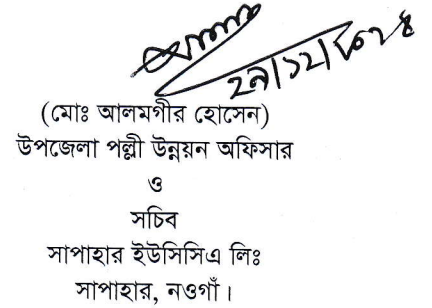 ২৯/১২/২০২৪
(মোঃ আলমগীর হোসেন)
উপজেলা পল্লী উন্নয়ন অফিসার
ও
সচিব
সাপাহার ইউসিসিএ লিঃ
সাপাহার, নওগাঁ।